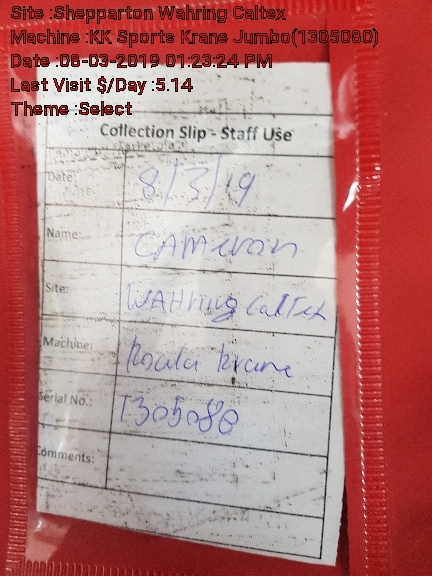 Site :Shepparton Wahring Caltex
Machine :KK Sports Krane Jumbo(1305080)
Date :08-03-2019 01:23:24 PM
Last Visit $/Day :5.14
Theme :Select
Collection Slip - Staff Use
Date: 8/3/19
Name: CAMeron
Site: WAHring CalTex
Machine: Koala Krane
Serial No.: 1305080
Comments: